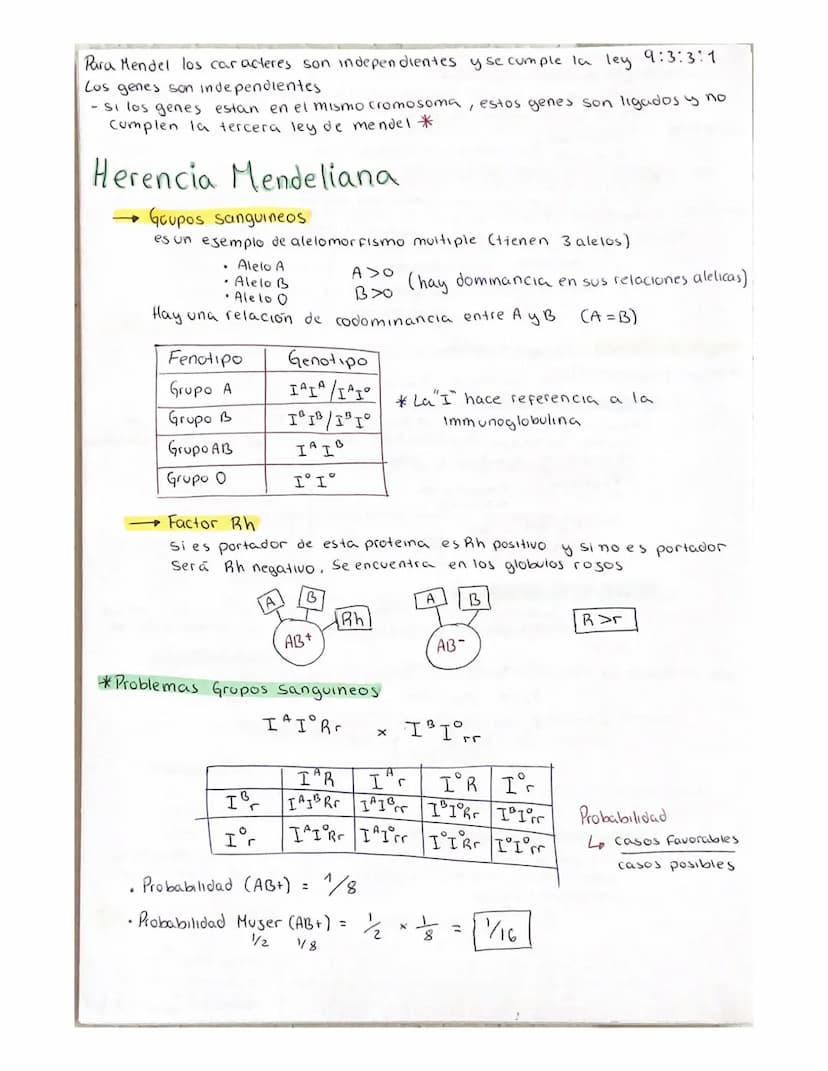 Para Mendel los caracteres son independientes y se cumple la ley 9:3:3:1
Los genes son independientes
- Si los genes estan en el mismo cromosoma, estos genes son ligados y no
cumplen la tercera ley de mendel *
Herencia Mendeliana
→ Grupos sanguineos
es un ejemplo de alelomorfismo multiple (tienen 3 alelos)
• Alelo A
• Alelo B
• Alelo O
A>o
B>o
(hay dominancia en sus relaciones alelicas)
Hay una relación de codominancia entre A y B (A=B)
Fenotipo Genotipo
Grupo A IᴬIᴬ/IᴬI°
Grupo B IᴮIᴮ/IᴮI°
Grupo AB IᴬIᴮ
Grupo O I°I°
* La "I" hace referencia a la
immunoglobulina
→ Factor Rh
Si es portador de esta proteina es Rh positivo y si no es portador
Será Rh negativo. Se encuentra en los globulos rojos
A B Rh AB+
A B AB-
R>r
*Problemas Grupos sanguineos
IᴬI°Rr x IᴮI°rr
IᴬR Iᴬr I°R I°r
Iᴮr IᴬIᴮRr IᴬIᴮrr IᴮI°Rr IᴮI°rr
I°r IᴬI°Rr IᴬI°rr I°I°Rr I°I°rr
Probabilidad
↳ casos favorables
casos posibles
• Probabilidad (AB+) = 1/8
• Probabilidad Mujer (AB+) = 1/2 × 1/8 = 1/16
1/2 1/8